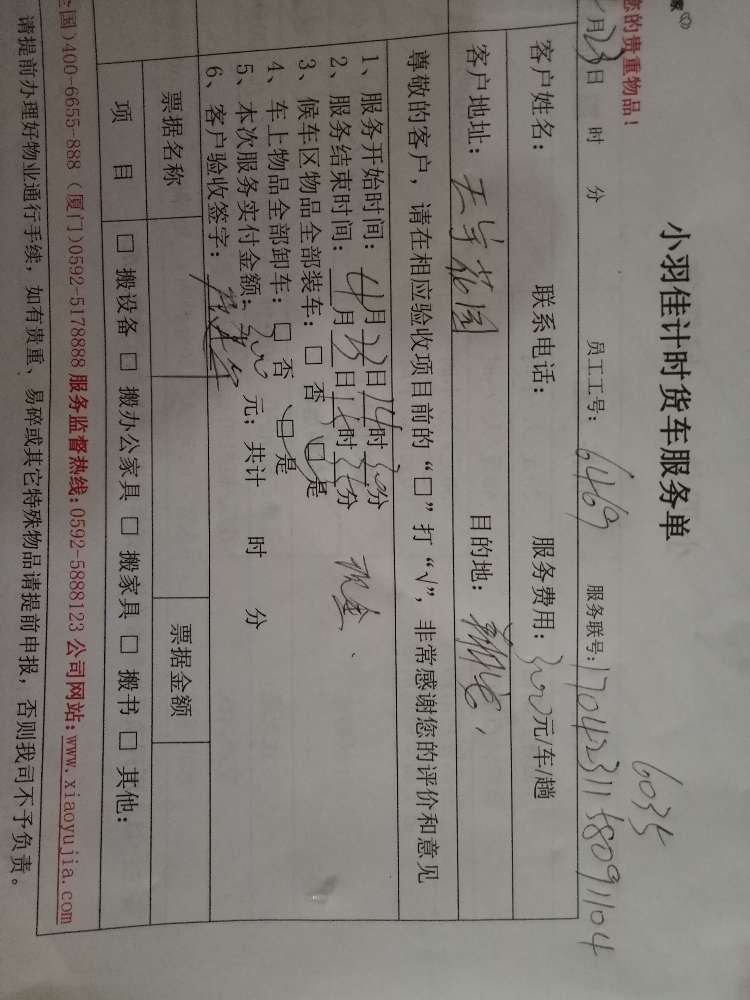 家
您的贵重物品！
小羽佳计时货车服务单
6035
月23日 时 分 员工工号：6469 服务联号：1704231158091104
客户姓名： 联系电话： 服务费用：300元/车/趟
客户地址： 花园 目的地：
尊敬的客户，请在相应验收项目前的“□”打“√”，非常感谢您的评价和意见
1、服务开始时间：4月23日14时30分
2、服务结束时间：4月23日 时 分 现金、
3、候车区物品全部装车：□ 否 □ 是
4、车上物品全部卸车：□ 否 □ 是
5、本次服务实付金额：300 元；共计 时 分
6、客户验收签字：
票据名称 票据金额
项 目 □ 搬设备 □ 搬办公家具 □ 搬家具 □ 搬书 □ 其他：
全国)400-6655-888 (厦门)0592-5178888 服务监督热线:0592-5888123 公司网站:www.xiaoyujia.com
请提前办理好物业通行手续，如有贵重、易碎或其它特殊物品请提前申报，否则我司不予负责。